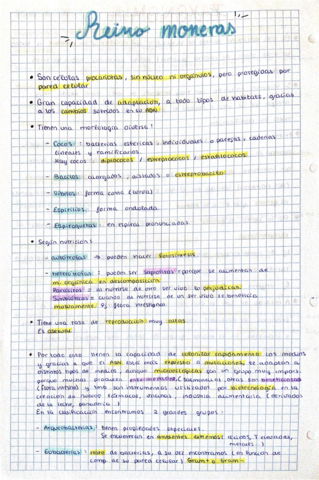 Reino moneras
• Son células procariotas, sin núcleo ni orgánulos, pero protegidas por
pared celular
• Gran capacidad de adaptación, a todo tipos de habitats, gracias
a los cambios sufridos en su ADN.
• Tienen una morfología diversa:
- Cocos: bacterias esféricas, individuales o parejas, cadenas
lineales y ramificarlos.
Hay cocos: diplococos / estreptococos / estafilococos
- Bacilos: alargados, aislados o estreptobacilo
- Vibrios: forma coma (curva)
- Espirilos: forma ondulada
- Espiroquetas: en espiral pronunciadas
• Según nutrición:
- autótrofas → pueden hacer fotosíntesis
- heterótrofas: pueden ser Saprófitas: porque se alimentan de
m. orgánica en descomposición
Parásitas: si al nutrirse de otro ser vivo lo perjudican.
Simbióticas: cuando al nutrirse de un ser vivo se beneficia
mutuamente. Ej: flora intestinal
• Tiene una tasa de reproducción muy
Es asexual
• Por todo esto tienen la capacidad de colonizar rápidamente los medios
y gracias a que el ADN está más expuesto a mutaciones, se adaptan a
distintos tipos de medios, aunque microbiológicas son un grupo muy importante,
porque muchas producen enfermedades, otras son beneficiosas
(flora intestinal) y otras son instrumentos utilizados por biotecnología en la
creación de nuevos fármacos, vacunas, industria alimentaria (derivados
de la leche, panadería)
En la clasificación encontramos 2 grandes grupos:
- Arqueobacterias: tienen propiedades especiales.
Se encuentran en ambientes extremos: ácidos, Tª elevadas,
- Eubacterias: resto de bacterias, a su vez encontramos (en función de
comp. de su pared celular) Gram+ o Gram-